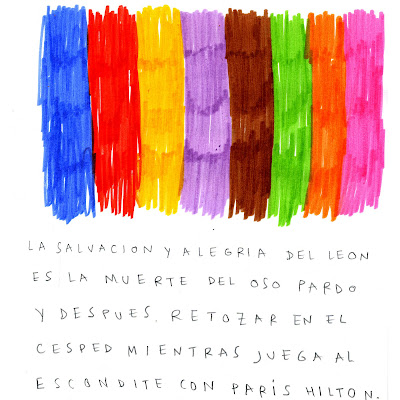 LA SALVACION Y ALEGRIA DEL LEON
ES LA MUERTE DEL OSO PARDO
Y DESPUES. RETOZAR EN EL
CESPED MIENTRAS JUEGA AL
ESCONDITE CON PARÍS HILTON.